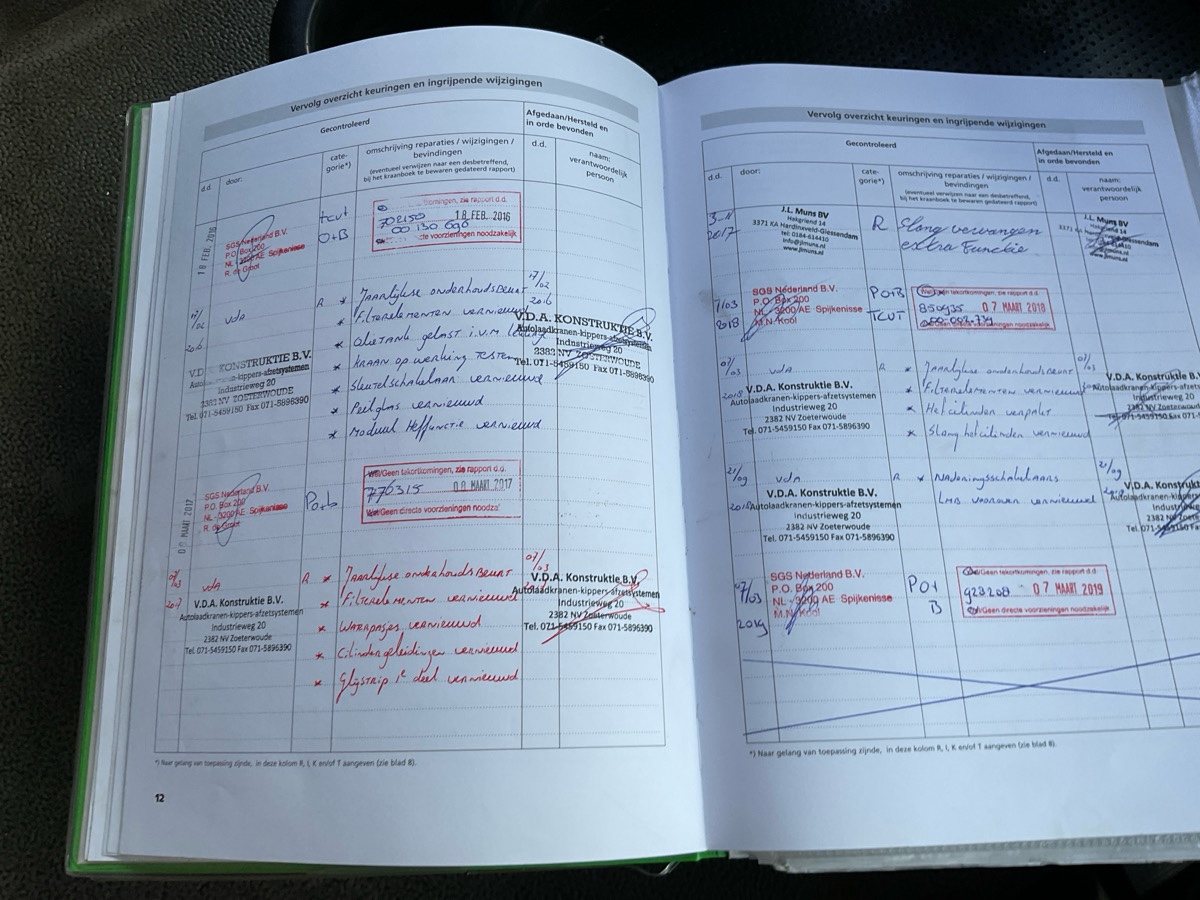 Vervolg overzicht keuringen en ingrijpende wijzigingen
Gecontroleerd
Afgedaan/Hersteld en
in orde bevonden
d.d.
door:
cate-
gorie*)
omschrijving reparaties / wijzigingen /
bevindingen
(eventueel verwijzen naar een desbetreffend,
bij het kraanboek te bewaren gedateerd rapport)
d.d.
naam:
verantwoordelijk
persoon
18 FEB. 2016
SGS Nederland B.V.
P.O. Box 200
NL - 3200 AE Spijkenisse
R. de Groot
tcut
O+B
komingen, zie rapport d.d.
702150 18 FEB. 2016
00 130 696
directe voorzieningen noodzakelijk
17/02
2016
vda
V.D.A. KONSTRUKTIE B.V.
Autolaadkranen-kippers-afzetsystemen
Industrieweg 20
2382 NV ZOETERWOUDE
Tel. 071-5459150 Fax 071-5896390
R * Jaarlijkse onderhoudsbeurt
* Filterelementen vernieuwd
* kraan op werking testen
* Sleutelschakelaar vernieuwd
* Peilglas vernieuwd
* Moduul Heffunctie vernieuwd
17/02
2016
V.D.A. KONSTRUKTIE B.V.
Autolaadkranen-kippers-afzetsystemen
Industrieweg 20
2382 NV ZOETERWOUDE
Tel. 071-5459150 Fax 071-5896390
08 MAART 2017
SGS Nederland B.V.
P.O. Box 200
NL - 3200 AE Spijkenisse
R. de Groot
P.o+b
Wel/Geen tekortkomingen, zie rapport d.d.
776315 08 MAART 2017
Wel/Geen directe voorzieningen noodza
07/03
2017
vda
V.D.A. Konstruktie B.V.
Autolaadkranen-kippers-afzetsystemen
Industrieweg 20
2382 NV Zoeterwoude
Tel. 071-5459150 Fax 071-5896390
R * Jaarlijkse onderhoudsbeurt
* Filterelementen vernieuwd
* vernieuwd
* Cilindergeleidingen vernieuwd
* Glijstrip 1e deel vernieuwd
07/03
V.D.A. Konstruktie B.V.
Autolaadkranen-kippers-afzetsystemen
Industrieweg 20
2382 NV Zoeterwoude
Tel. 071-5459150 Fax 071-5896390
*) Naar gelang van toepassing zijnde, in deze kolom R, I, K en/of T aangeven (zie blad 8).
12
Vervolg overzicht keuringen en ingrijpende wijzigingen
Gecontroleerd
Afgedaan/Hersteld en
in orde bevonden
d.d.
door:
cate-
gorie*)
omschrijving reparaties / wijzigingen /
bevindingen
(eventueel verwijzen naar een desbetreffend,
bij het kraanboek te bewaren gedateerd rapport)
d.d.
naam:
verantwoordelijk
persoon
2017
J.L. Muns BV
Hakgriend 14
3371 KA Hardinxveld-Giessendam
tel: 0184-614410
info@jlmuns.nl
www.jlmuns.nl
R
Slang vervangen
extra Functie
J.L. Muns BV
7/03
2018
SGS Nederland B.V.
P.O. Box 200
NL - 3200 AE Spijkenisse
M.N. Kool
PO+B
TCUT
tekortkomingen, zie rapport d.d.
850935 07 MAART 2018
directe voorzieningen noodzakelijk
07/03
2018
vda
V.D.A. Konstruktie B.V.
Autolaadkranen-kippers-afzetsystemen
Industrieweg 20
2382 NV Zoeterwoude
Tel. 071-5459150 Fax 071-5896390
R * Jaarlijkse onderhoudsbeurt
* Filterelementen vernieuwd
* Hefcilinder
* Slang hefcilinder vernieuwd
07/03
V.D.A. Konstruktie B.V.
Autolaadkranen-kippers-afzetsys
Industrieweg 20
2382 NV Zoeterwoude
21/09
vda
V.D.A. Konstruktie B.V.
Autolaadkranen-kippers-afzetsystemen
Industrieweg 20
2382 NV Zoeterwoude
Tel. 071-5459150 Fax 071-5896390
R * Naderingsschakelaars
vernieuwd
21/09
V.D.A. Konstruktie
Autolaadkranen-kippers-afzets
07/03
2019
SGS Nederland B.V.
P.O. Box 200
NL - 3200 AE Spijkenisse
M.N. Kool
PO+
B
Wel/Geen tekortkomingen, zie rapport d.d.
928208 07 MAART 2019
Wel/Geen directe voorzieningen noodzakelijk
*) Naar gelang van toepassing zijnde, in deze kolom R, I, K en/of T aangeven (zie blad 8).